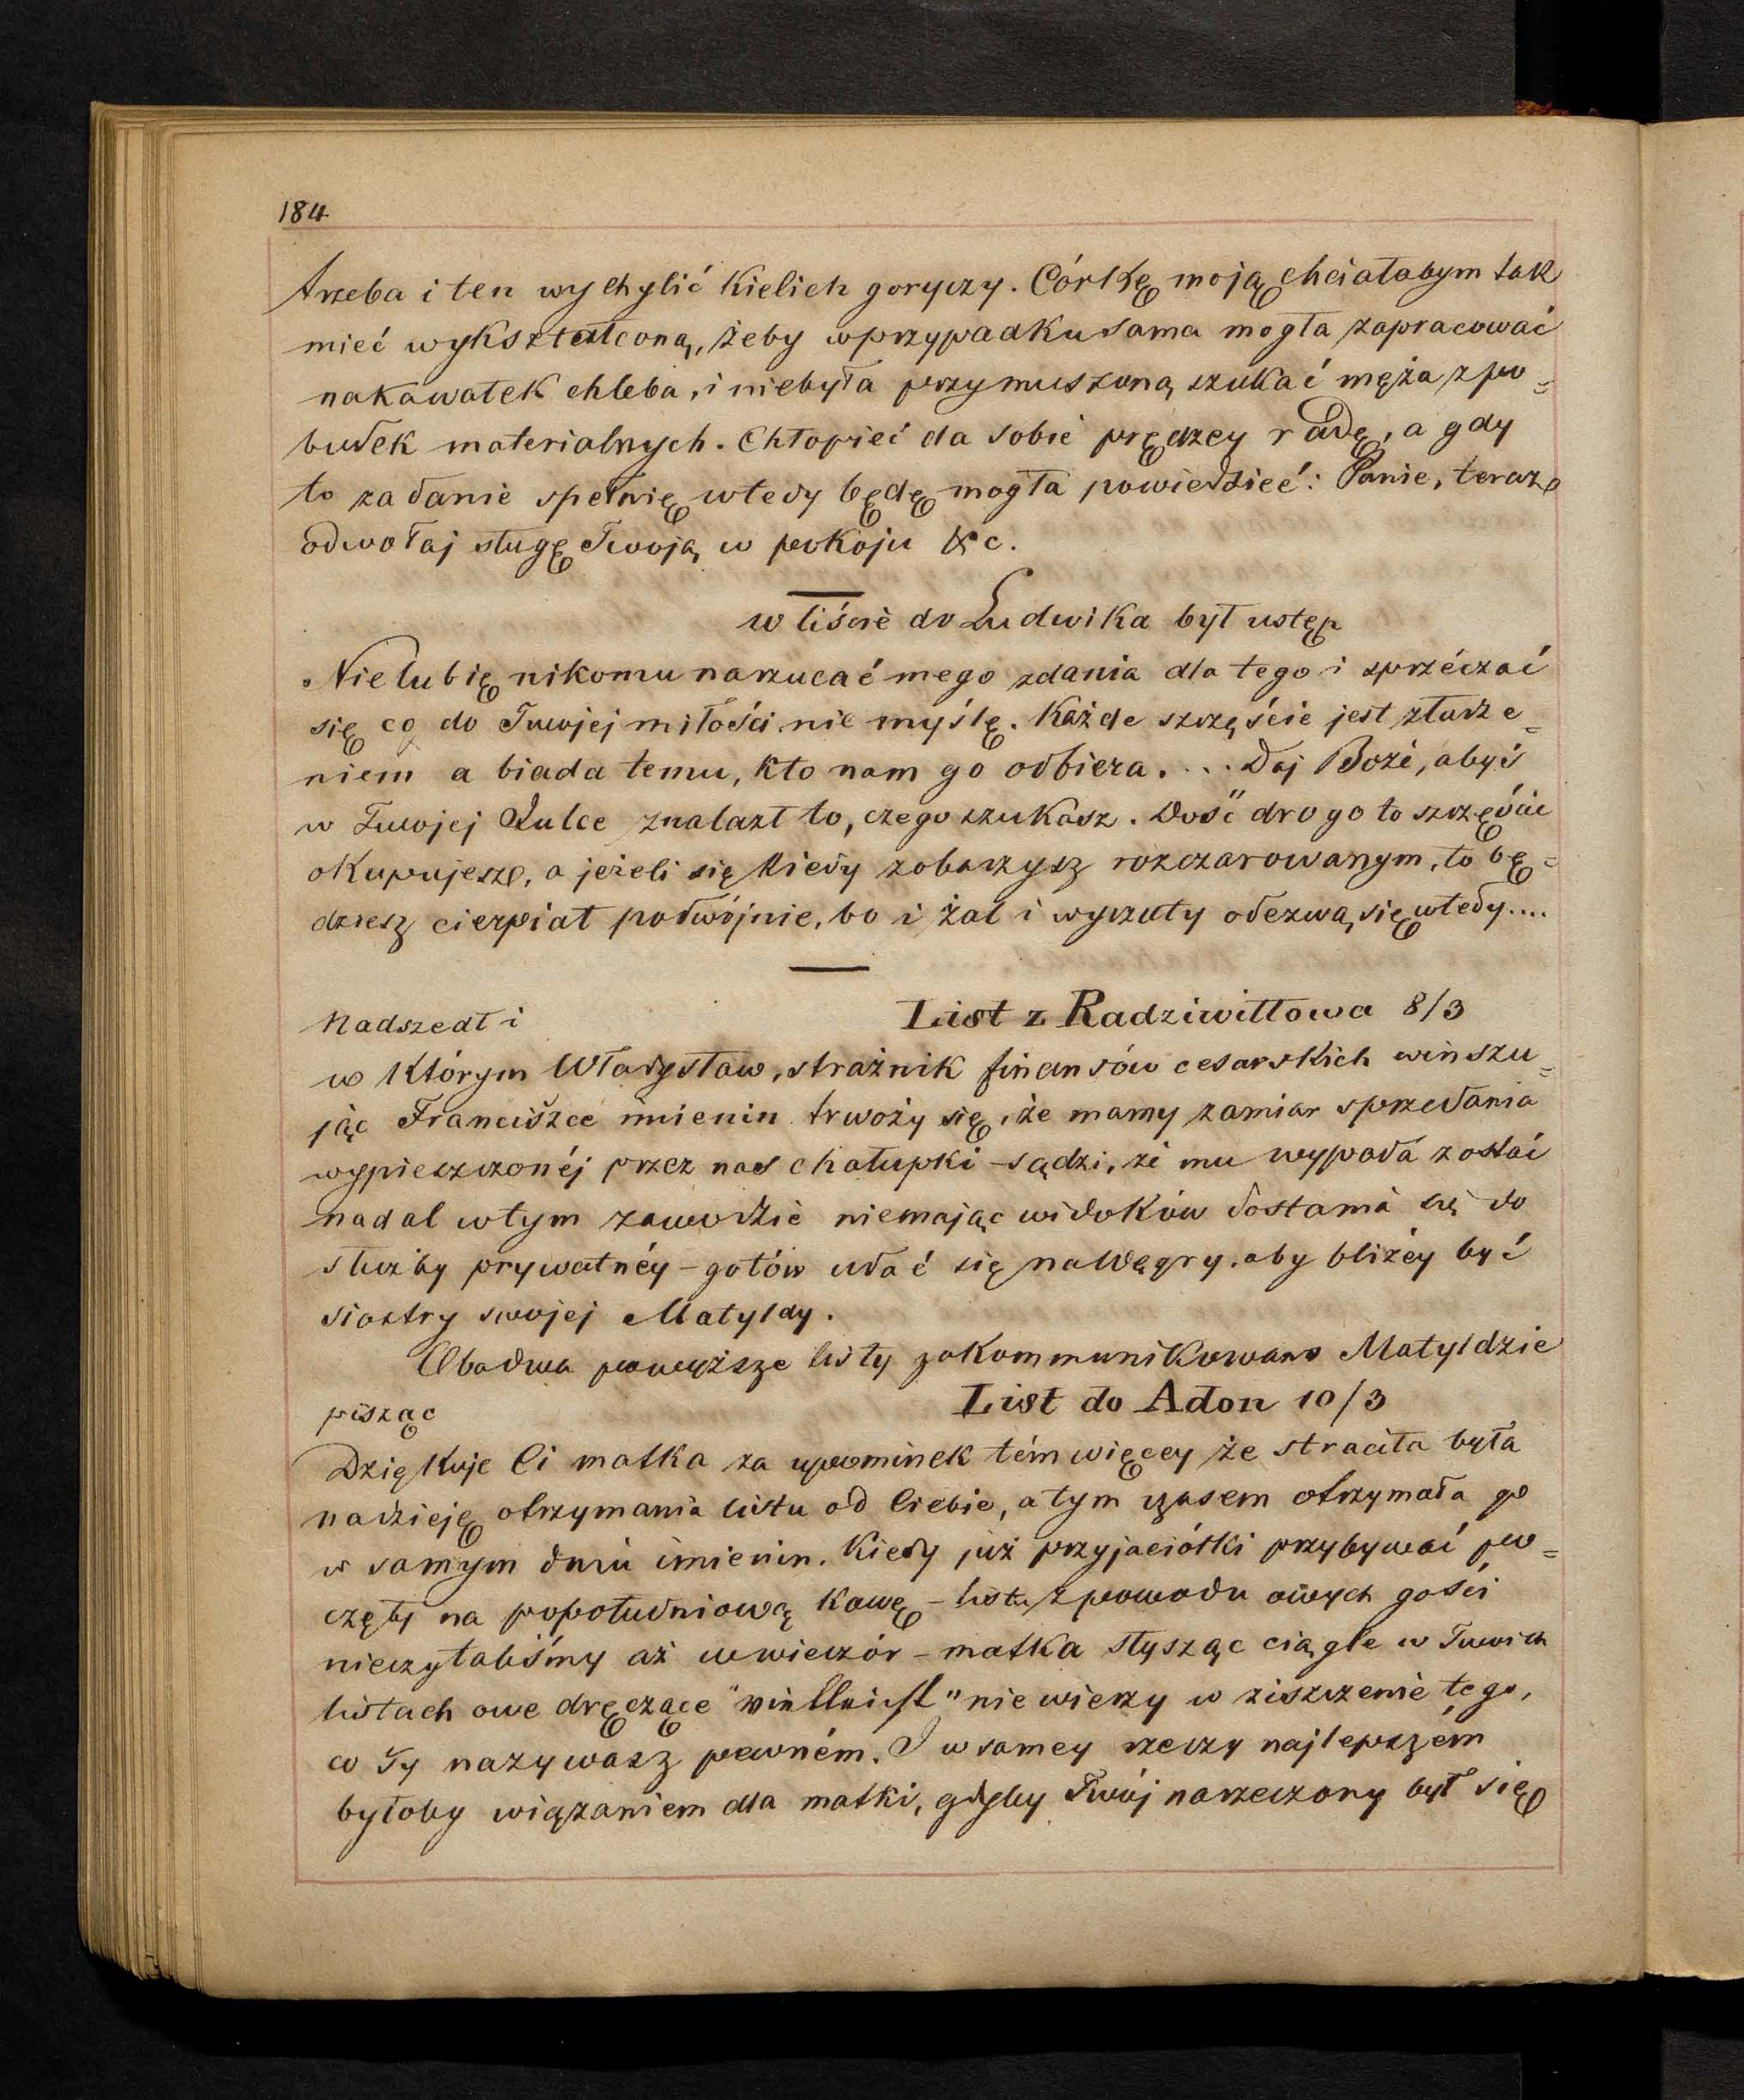 184
trzeba i ten wychylić kielich goryczy. Córkę moją chciałabym tak
mieć wykształconą, żeby w przypadku sama mogła zapracować
na kawałek chleba, i niebyła przymuszoną szukać męża z po=
budek materialnych. Chłopieć da sobie prędzey radę, a gdy
to zadanie spełnię wtedy będę mogła powiedzieć: Panie, teraz
odwołaj sługę Twoją w pokoju &c.
w liście do Ludwika był ustęp
Nie lubię nikomu narzucać mego zdania dla tego i sprzéczać
się co do Twojej miłości nie myślę. Każde szczęście jest złudze=
niem a biada temu, kto nam go odbiera. ... Daj Boże, abyś
w Twojej Julce znalazł to, czego szukasz. Dość drogo to szczęście
okupujesz, a jeżeli się kiedy zobaczysz rozczarowanym, to bę=
dziesz cierpiał podwójnie, bo i żal i wyrzuty odezwą się wtedy....
Nadszedł i List z Radziwiłłowa 8/3
w którym Władysław, strażnik finansów cesarskich winszu=
jąc Franciszce imienin trwoży się, że mamy zamiar sprzedania
wypieszczonéj przez nas chałupki - sądzi, że mu wypada zostać
nadal w tym zawodzie niemając widoków dostania się do
służby prywatnéy - gotów udać się na Węgry, aby bliżéy być
siostry swojej Matyldy.
Obadwa powyższe listy zakommunikowano Matyldzie
pisząc List do Adon 10/3
Dziękuje Ci matka za upominek tém więcey że straciła była
nadzieję otrzymania listu od Ciebie, a tym czasem otrzymała go
w samym dniu imienin. Kiedy już przyjaciółki przybywać po=
częły na popołudniową kawę - listu z powodu owych gości
nieczytaliśmy aż w wieczór - matka słysząc ciągle w Twoich
listach owe dręczące "vielleicht" nie wierzy w ziszczenie tego,
co Ty nazywasz pewném. I w samey rzeczy najlepszém
byłoby wiązaniem dla matki, gdyby Twój narzeczony był się